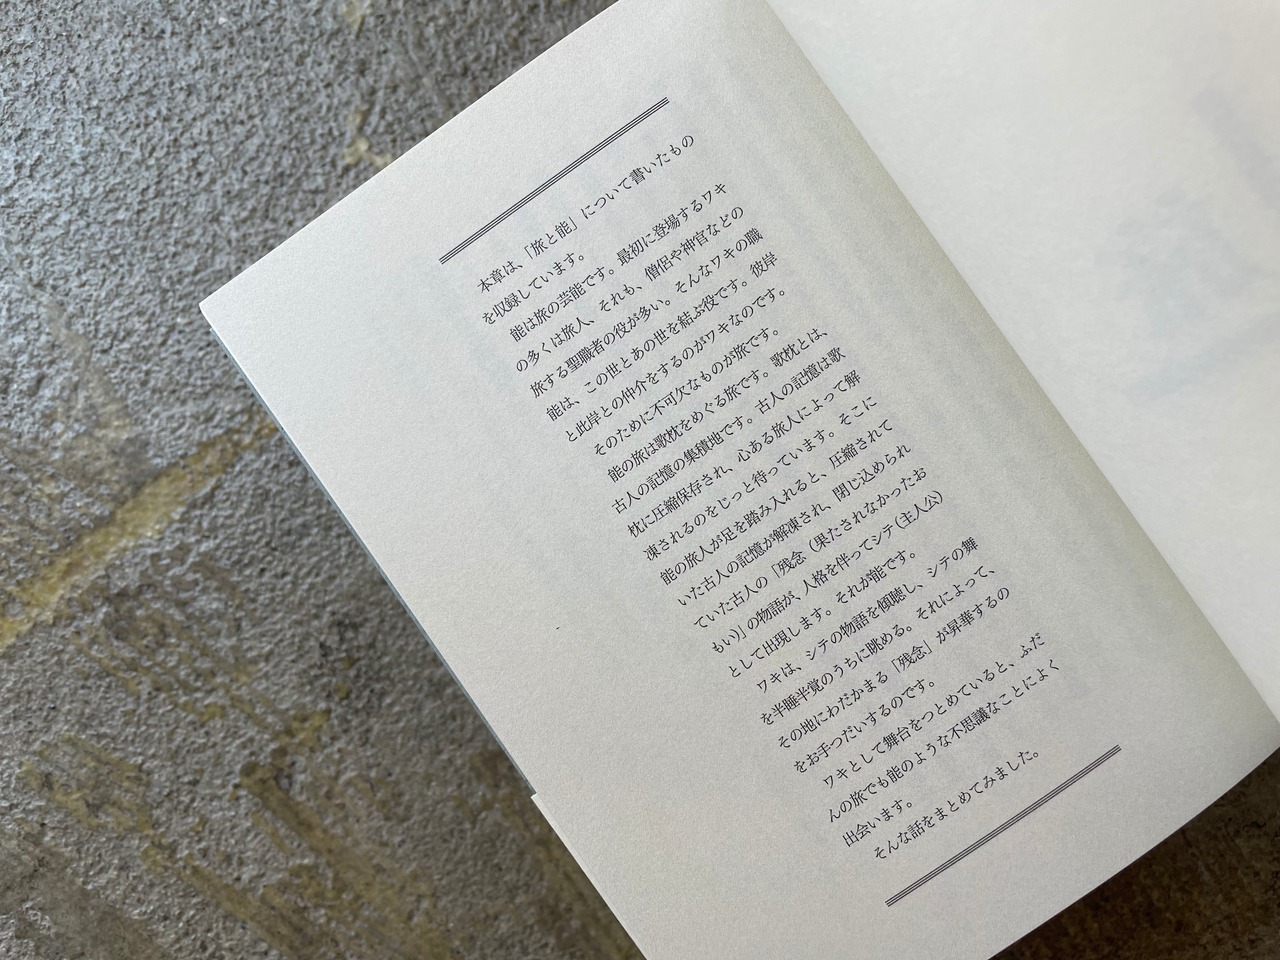 本章は、「旅と能」について書いたもの
を収録しています。
能は旅の芸能です。最初に登場するワキ
の多くは旅人、それも、僧侶や神官などの
旅する聖職者の役が多い。そんなワキの職
能は、この世とあの世を結ぶ役です。彼岸
と此岸との仲介をするのがワキなのです。
そのために不可欠なものが旅です。
能の旅は歌枕をめぐる旅です。歌枕とは、
古人の記憶の集積地です。古人の記憶は歌
枕に圧縮保存され、心ある旅人によって解
凍されるのをじっと待っています。そこに
能の旅人が足を踏み入れると、圧縮されて
いた古人の記憶が解凍され、閉じ込められ
ていた古人の「残念（果たされなかったお
もい）」の物語が、人格を伴ってシテ（主人公）
として出現します。それが能です。
ワキは、シテの物語を傾聴し、シテの舞
を半睡半覚のうちに眺める。それによって、
その地にわだかまる「残念」が昇華するの
をお手つだいするのです。
ワキとして舞台をつとめていると、ふだ
んの旅でも能のような不思議なことによく
出会います。
そんな話をまとめてみました。